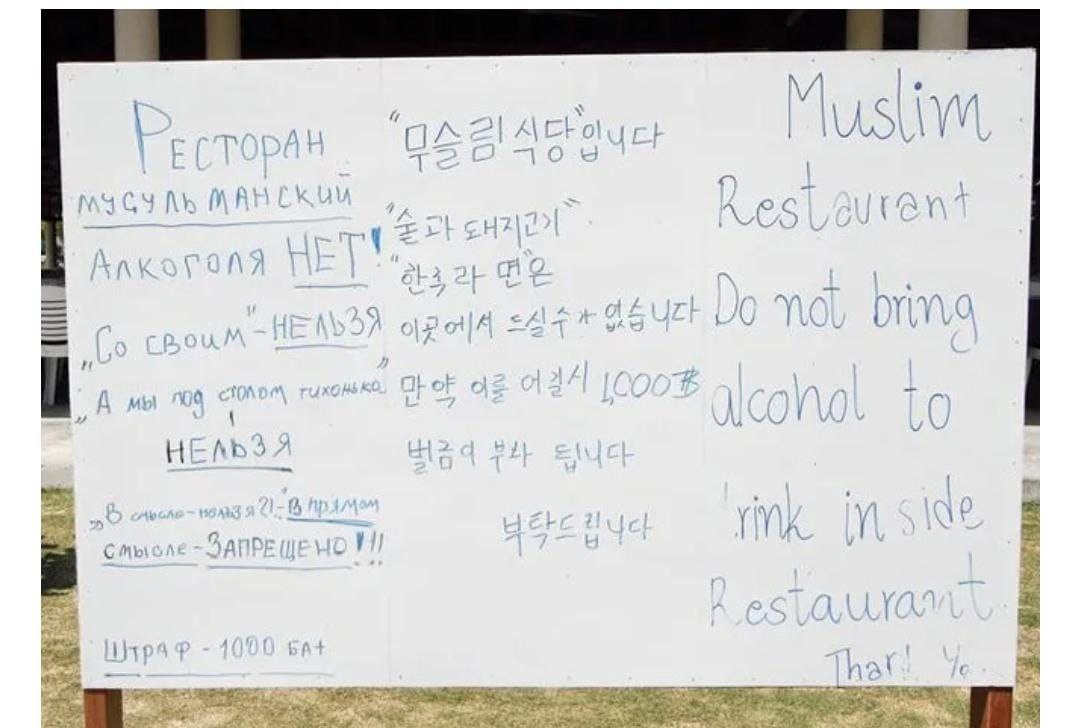 РЕСТОРАН
МУСУЛЬМАНСКИЙ
АЛКОГОЛЯ НЕТ!
„Со СВОИМ"-НЕЛЬЗЯ
„А мы под столом тихонько"
НЕЛЬЗЯ
„В смысле-нельзя?!-"В прямом
смысле-ЗАПРЕЩЕНО!!!
ШТРАФ-1000 БАТ
"무슬림식당"입니다
"술과 돼지고기"
"한국라면"은
이곳에서 드실수가 없습니다
만약 이를 어길시 1,000฿
벌금이 부과 됩니다
부탁드립니다
Muslim
Restaurant
Do not bring
alcohol to
rink inside
Restaurant